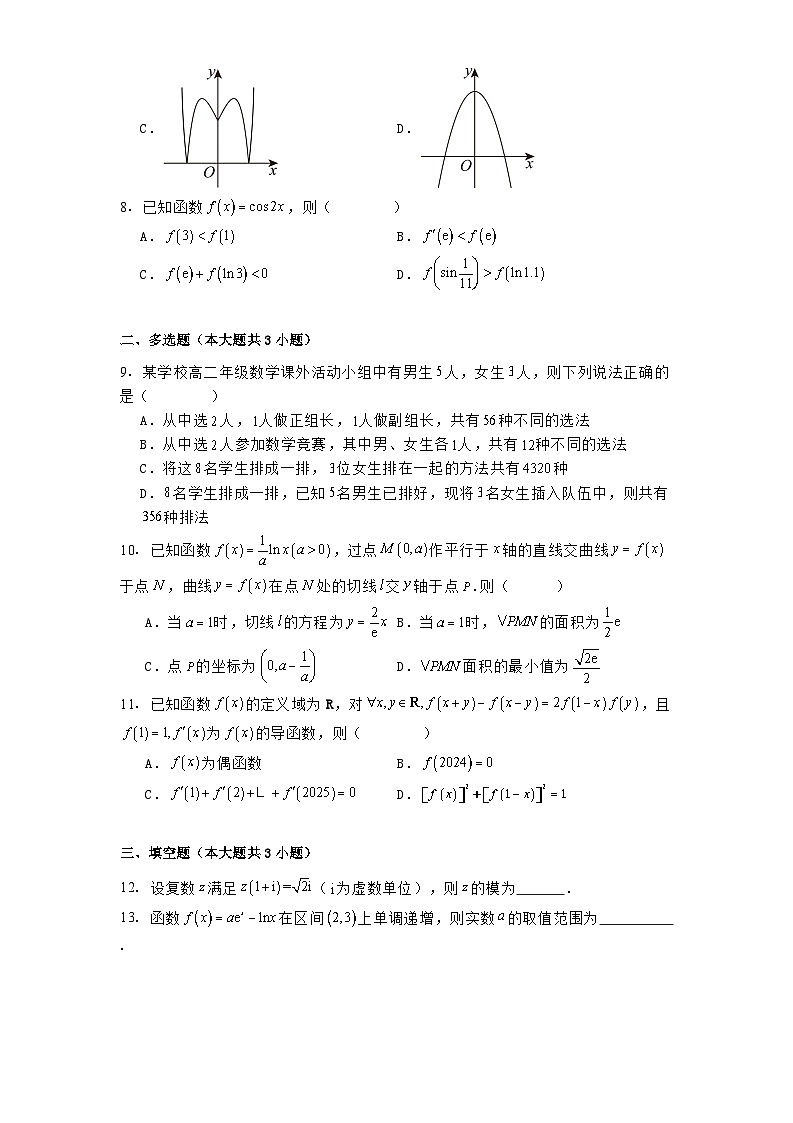 y
y
C.
D.
O
x
O
x
8. 已知函数 f(x)=cos2x,则( )
A. f(3)<f(1)
B. f′(e)<f(e)
C. f(e)+f(ln3)<0
D. f(sin 1/11)>f(ln1.1)
二、多选题(本大题共3小题)
9. 某学校高二年级数学课外活动小组中有男生5人,女生3人,则下列说法正确的
是( )
A.从中选2人,1人做正组长,1人做副组长,共有56种不同的选法
B.从中选2人参加数学竞赛,其中男、女生各1人,共有12种不同的选法
C.将这8名学生排成一排,3位女生排在一起的方法共有4320种
D.8名学生排成一排,已知5名男生已排好,现将3名女生插入队伍中,则共有
356种排法
10. 已知函数 f(x)=1/a lnx(a>0),过点M(0,a)作平行于x轴的直线交曲线y=f(x)
于点N,曲线y=f(x)在点N处的切线l交y轴于点P.则( )
A.当a=1时,切线l的方程为y=2/e x B.当a=1时,∨PMN的面积为1/2 e
C.点P的坐标为(0,a−1/a)
D.∨PMN面积的最小值为√2e/2
11. 已知函数f(x)的定义域为R,对∀x,y∈R,f(x+y)−f(x−y)=2f(1−x)f(y),且
f(1)=1,f′(x)为f(x)的导函数,则( )
A. f(x)为偶函数
B. f(2024)=0
C. f′(1)+f′(2)+∟+f′(2025)=0
D. [f(x)]²+[f(1−x)]²=1
三、填空题(本大题共3小题)
12. 设复数z满足z(1+i)=√2i(i为虚数单位),则z的模为______.
13. 函数f(x)=aeˣ−lnx在区间(2,3)上单调递增,则实数a的取值范围为__________
.